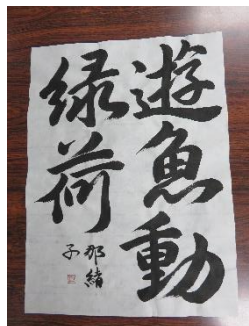 遊魚動
緑荷
那緒子